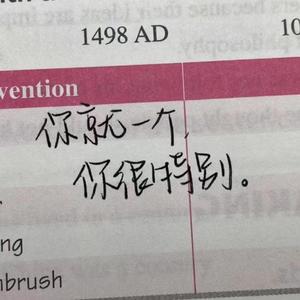 1498 AD 10
vention
你就一个,
你很特别。
ng
hbrush